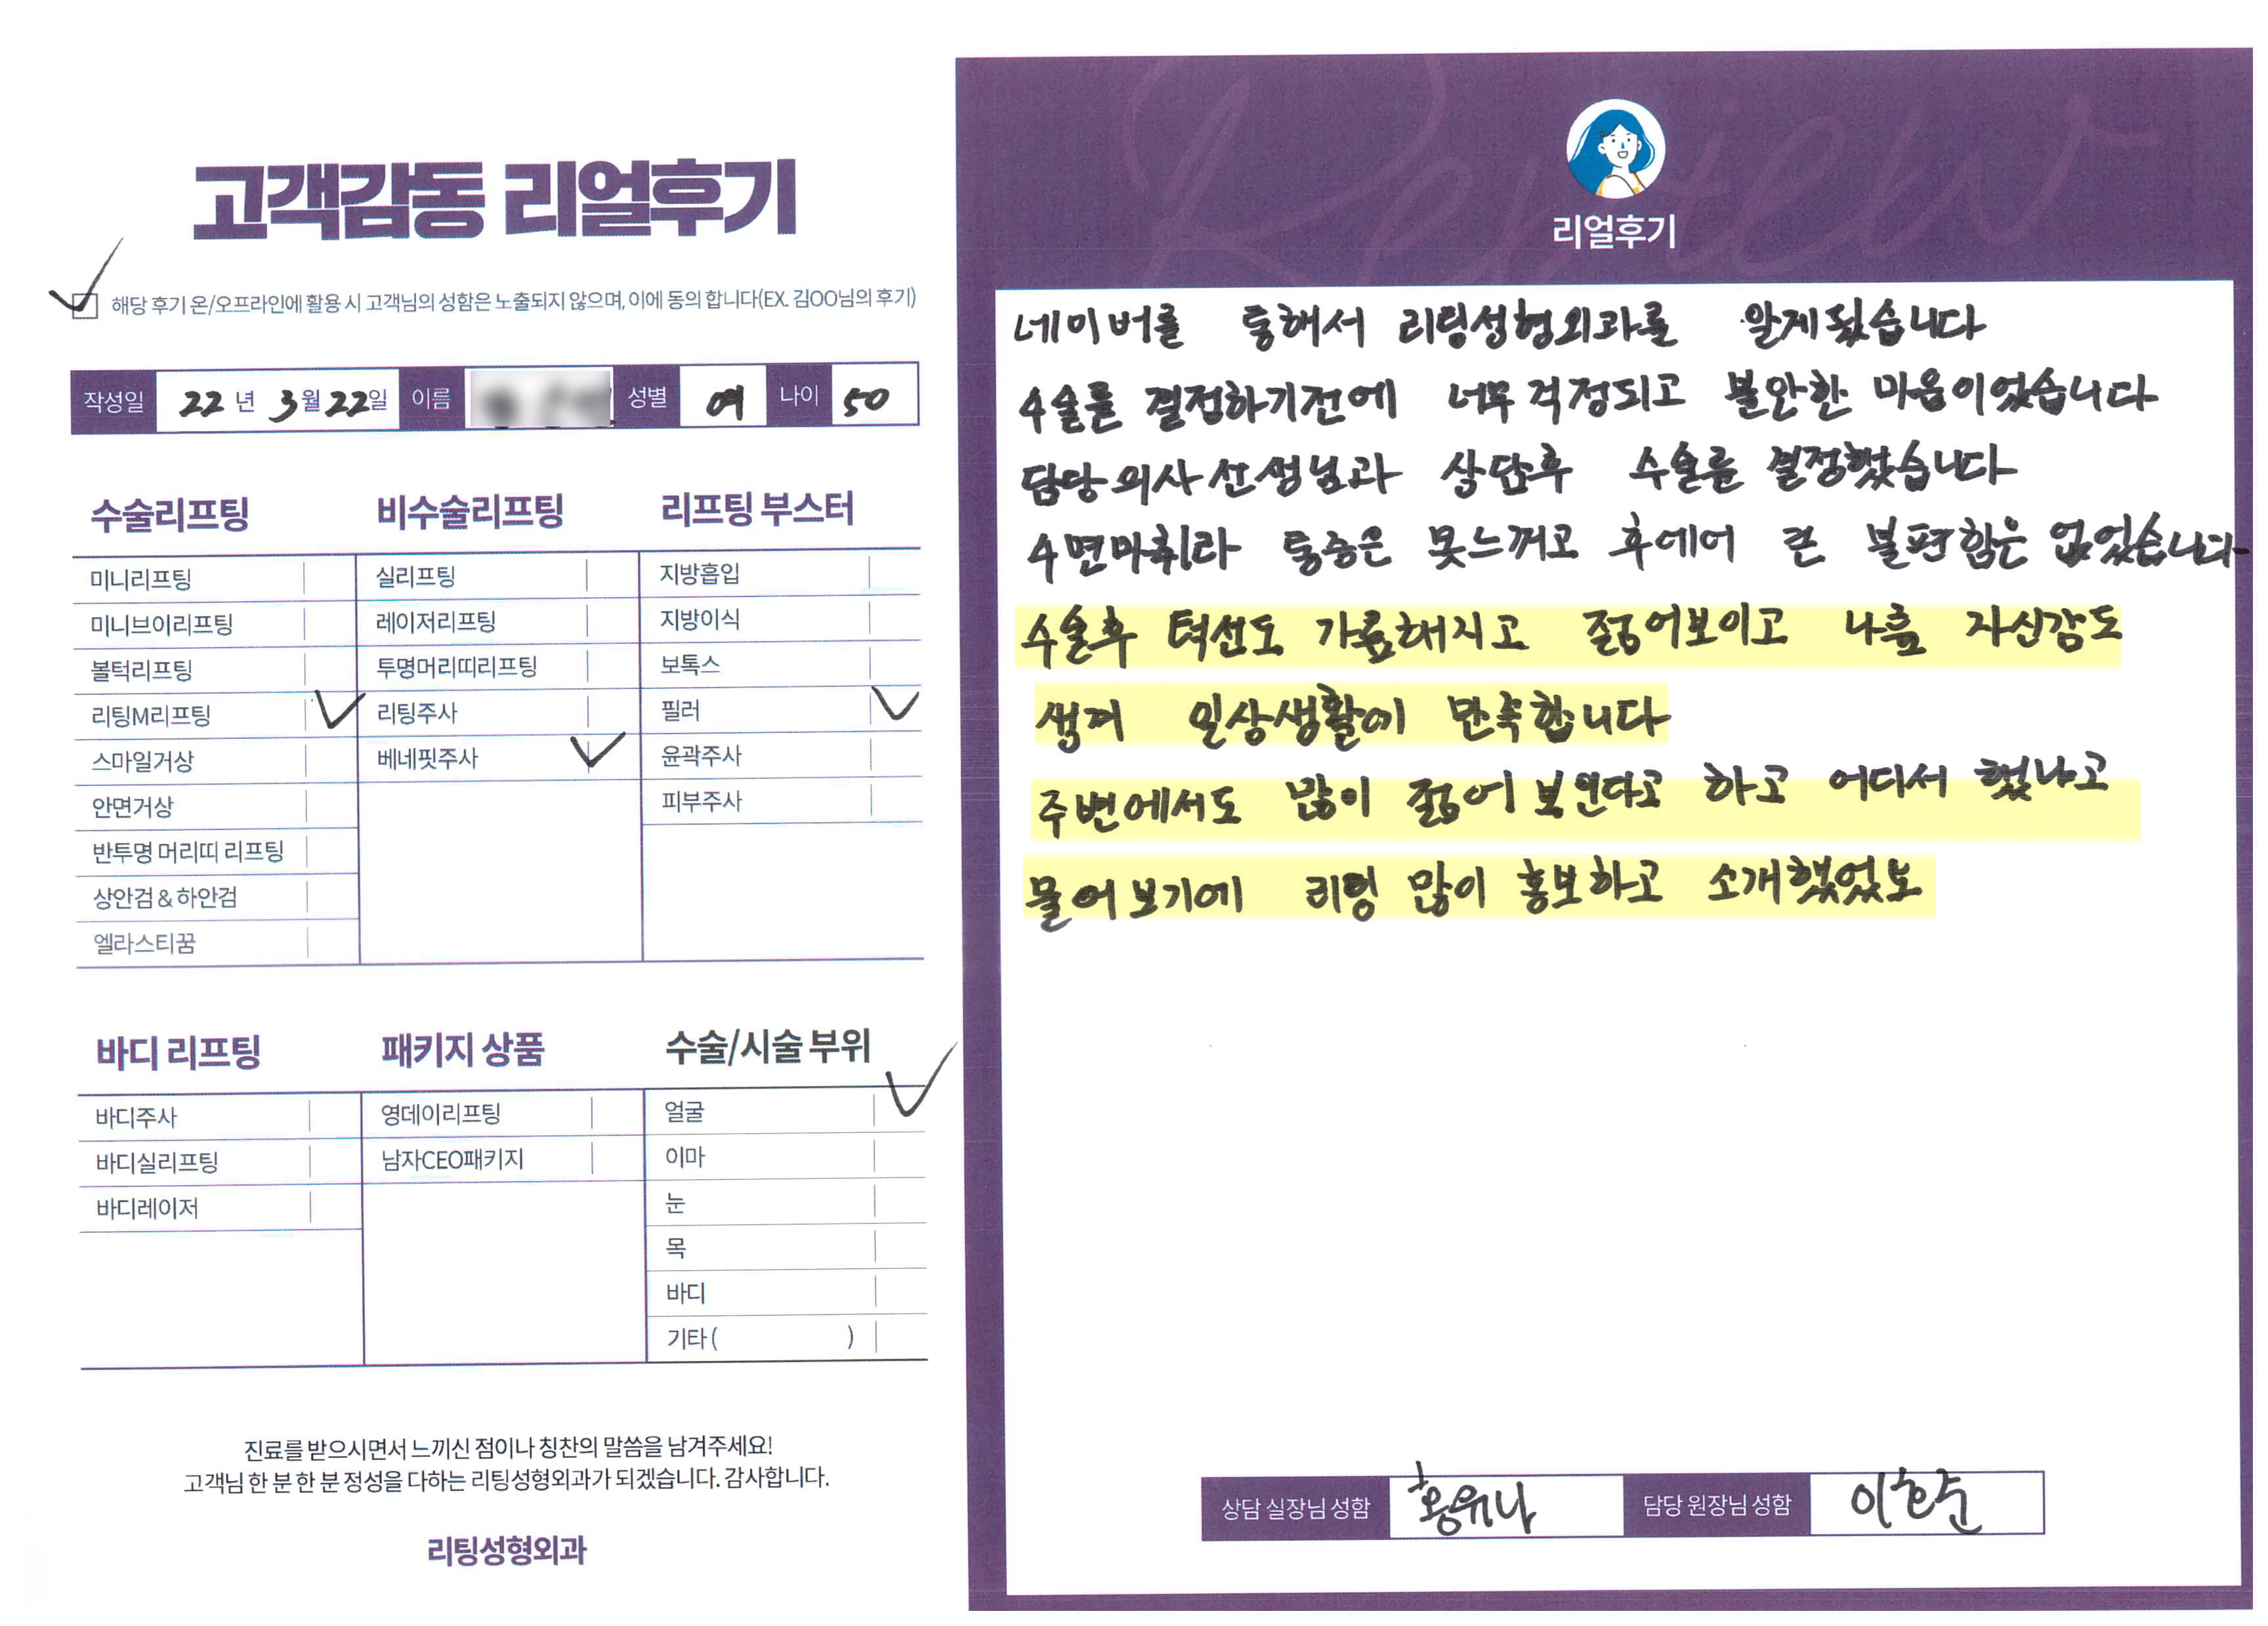 고객감동 리얼후기
해당 후기 온/오프라인에 활용 시 고객님의 성함은 노출되지 않으며, 이에 동의 합니다(EX. 김OO님의 후기)
작성일 22년 3월 22일 이름 성별 여 나이 50
수술리프팅
미니리프팅
미니브이리프팅
볼턱리프팅
리팅M리프팅
스마일거상
안면거상
반투명 머리띠 리프팅
상안검 & 하안검
엘라스티꿈
비수술리프팅
실리프팅
레이저리프팅
투명머리띠리프팅
리팅주사
베네핏주사
리프팅 부스터
지방흡입
지방이식
보톡스
필러
윤곽주사
피부주사
바디 리프팅
바디주사
바디실리프팅
바디레이저
패키지 상품
영데이리프팅
남자CEO패키지
수술/시술 부위
얼굴
이마
눈
목
바디
기타 ( )
진료를 받으시면서 느끼신 점이나 칭찬의 말씀을 남겨주세요!
고객님 한 분 한 분 정성을 다하는 리팅성형외과가 되겠습니다. 감사합니다.
리팅성형외과
Review
리얼후기
네이버를 통해서 리팅성형외과를 알게됬습니다
수술를 결정하기전에 너무 걱정되고 불안한 마음이었습니다
담당의사선생님과 상담후 수술를 결정했습니다
수면마취라 통증은 못느끼고 후에어 큰 불편함은 없었습니다
수술후 턱선도 가름해지고 젊어보이고 나름 자신감도
생겨 일상생활에 만족합니다
주변에서도 많이 젊어 보인다고 하고 어디서 했냐고
물어보기에 리팅 많이 홍보하고 소개했었보
상담 실장님 성함 홍유나 담당 원장님 성함 이호준